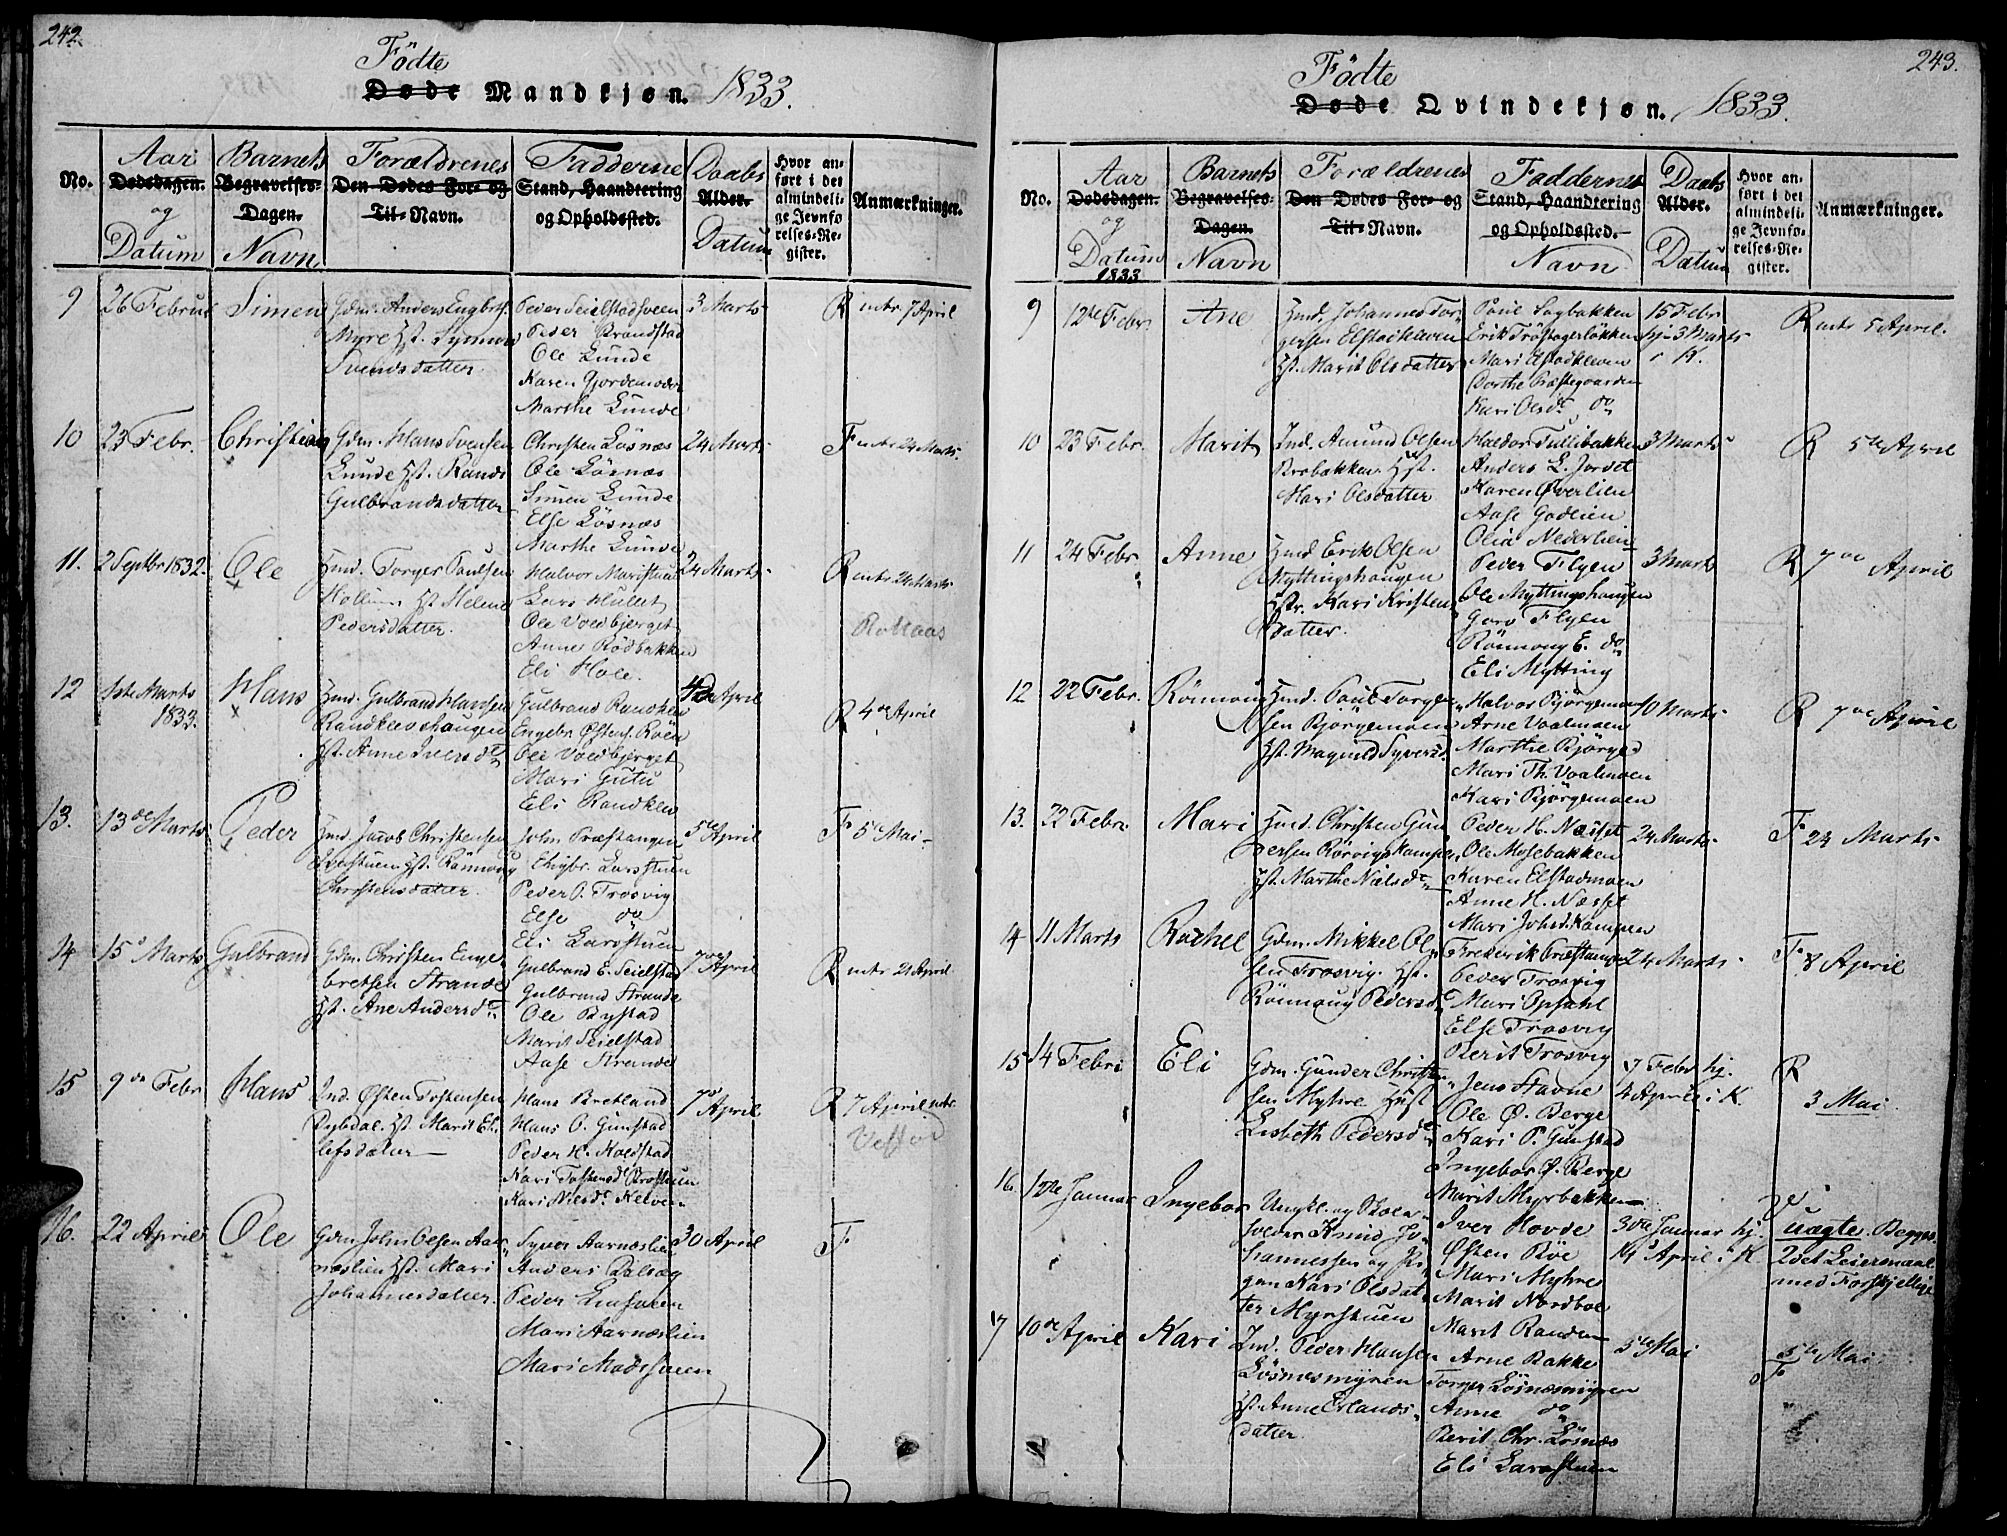 242.
Födte
Døde Mandkjøn. 1833.
No.
Aar
Dødsdagen.
og
Datum
Barnets
Begravelses-
Dagen.
Navn
Forældrenes
Den Dødes For- og
Til-Navn.
Fadderne
Stand, Haandtering
og Opholdssted.
Daabs
Alder.
Datum
Hvor an-
ført i det
almindeli-
ge Jevnfø
relses-Re-
gister.
Anmærkninger.
9
26 Februar
Simen
Gdm. Anders Engbrts.
Myre Hst. Symmor
Svendsdatter
Peder Seielstadsveen
Peder Brandstad
Ole Lunde
Karen Gjordemoder
Marthe Lunde
3 Marts
R intr. 7 April
10
23 Febr.
Christian
Gdm. Hans Svensen
Lunde Hst. Randi
Gulbrandsdatter
Christen Lösnæs
Ole Lösnæs
Simen Lunde
Else Lösnæs
Marthe Lunde
24 Marts
F intr. 24 Marts.
11.
2 Septbr 1832.
Ole
Hmd. Torger Paulsen
Hst Helene
Pedersdatter.
Halvor Maristuen
Lars Hullet
Ole Voldbjerget
Anne Rödbakken
Eli Hole.
24 Marts
R intr. 24 Marts
12
1ste Marts
1833.
Hans
Hmd. Gulbrand Hansen
Randklevshaugen
Hst. Anne Iversdr
Gulbrand Randklev
Engebr Östens. Röen
Ole Voldbjerget
Mari Gutu
Eli Randklev
4de April
R 4de April
13.
13de Marts
Peder
Hmd. Jacob Christensen
Hst. Rönnoug
Christensdatter.
John Præstangen
Larsstuen
Peder O. Trosvig
Else do
Eli Larsstuen
5te April
F 5 Mai
14
15de Marts
Gulbrand
Gdm. Christen Enge
bretsen Strande
Hst. Ane Andersdr
Gulbrand E. Seielstad
Gulbrand Strande
Ole Bystad
Marit Seielstad
Aase Strande
7de April
R intr. 21 April
15
9de Febr
Hans
Ind. Östen Tostensen
Dybdal. Hst. Marit El-
lefsdatter
Hans Bretland
Hans O. Gunstad
Peder H. Koldstad
Kari Tostensdr
Kari Nilsdr
7de April
R 7 April intr.
16.
22 April
Ole
Gdm John Olsen Aar
næslien Hst. Mari
Johannesdatter.
Syver Aarnæslien
Anders Dalsæg
Peder
Mari Aarnæslien
Mari
30 April
F
243.
Födte
Døde Qvindekjøn. 1833.
No.
Aar
Dødsdagen.
og
Datum
1833
Barnets
Begravelses-
Dagen.
Navn
Forældrenes
Den Dødes For- og
Til-Navn.
Faddernes
Stand, Haandtering
og Opholdssted.
Navn
Daabs
Alder.
Datum
Hvor an-
ført i det
almindeli-
ge Jevnfø-
relses-Re-
gister.
Anmærkninger.
9
12te Febr.
Ane
Hmd. Johannes Tor
gersen Elstadkleven
Hst. Marit Olsdatter
Paul Sagbakken
Erik
Mari Elstadkleven
Dorthe Præstegaarden
Kari Olsdr. do
15 Febr.
hj. 3 Marts
i K.
R intr 5 April.
10
23 Febr.
Marit
Ind. Amund Olsen
Brobakken. Hst.
Mari Olsdatter
Haldor Tullibakken
Anders L. Jordet
Karen Överlien
Aase Godlien
Olia Nederlien
3 Marts
R 5te April
11
24 Febr.
Anne
Hmd Erik Olsen
Myttingshaugen
Hstr. Kari Kristens
datter.
Peder Flyen
Ole Myttingshaugen
Goro Flyen
Rönnoug E. do
Eli Mytting
3 Marts
R 7de April
12
22 Febr.
Rönnoug
Hmd. Paul Torger
sen Bjørgemoen
Hst. Magnild Syversd.
Halvor Bjørgemoen
Arne Vaalmoen
Marthe Bjørge
Mari Th. Vaalmoen
Kari Bjørgemoen
10 Marts
R 7de April
13.
22 Febr.
Mari
Hmd. Christen Gun
dersen Rörvigskampen
Hst. Marthe Nielsdr
Peder H. Næsset
Ole Mosebakken
Karen Elstadmoen
Anne H. Næsset
Mari Johnsd. Kampen
24 Marts
F 24 Marts
14
11 Marts
Rachel
Gdm. Mikkel Ol
sen Trosvig. Hst.
Rönnoug Pedersdr
Frederik Præstangen
Peder Trosvig
Mari Opsahl
Else Trosvig
Berit Trosvig
24 Marts
F 8 April
15
14 Febr
Eli
Gdm. Gunder Christen
sen Myhre Hust
Lisbeth Pedersdr
Jens Stavne
Ole Ö. Berge
Kari P. Gunstad
Ingebor O. Berge
Marit Myrbakken
17 Febr hj.
4 April i K.
R
3 Mai
16.
1ste Januar
Ingebor
Ungkl. og
Knud Jo
hannessen og Pi
gen Kari Olsdat
ter Myrstuen
Iver Hovde
Östen Röe
Mari Myhre
Marit Nordboe
Marit Randen
3die Januar hj.
14 April i K
uægte. Begges
2det Leiermaal
med Forskjellige
17
10de April
Kari
Ind. Peder Hansen
Lösnæsmyren
Hst. Anne Erlands-
datter.
Arne Bakke
Torger Lösnæsmyren
Anne do
Berit Chr. Lösnæs
Eli Larsstuen
5te Mai
5te Mai
F